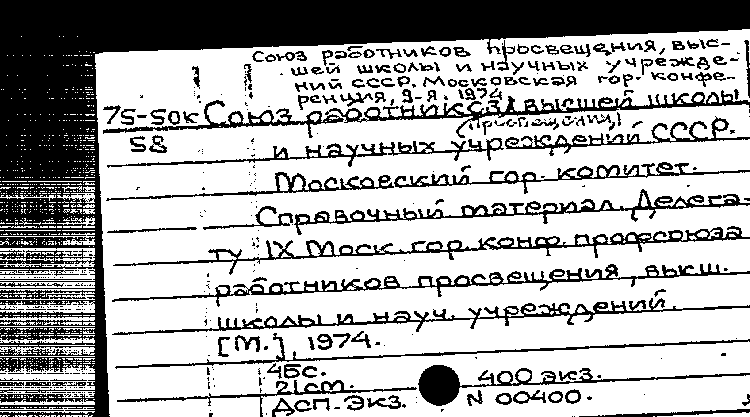 Союз работников просвещения, выс-
шей школы и научных учрежде-
ний СССР. Московская гор. конфе-
ренция, 9-я. 1974
75-50к Союз работников высшей школы
просвещения,
58 и научных учреждений СССР.
Московский гор. комитет.
Справочный материал. Делега-
ту IX Моск. гор. конф. профсоюза
работников просвещения, высш.
школы и науч. учреждений.
[М.], 1974.
46с.
21см. 400 экз.
ДСП. Экз. N 00400.